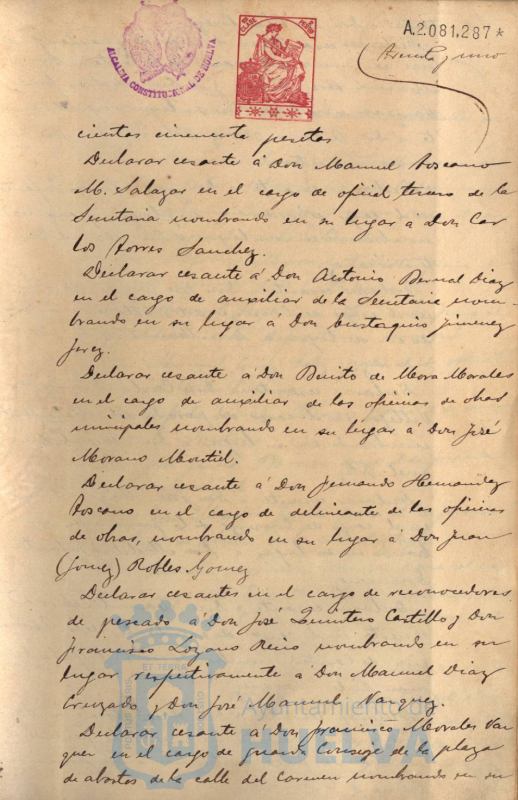 A.2.081.287*
Treinta y uno
ALCALDIA CONSTITUCIONAL DE HUELVA
cientas cincuenta pesetas
Declarar cesante á Don Manuel Toscano
M. Salazar en el cargo de oficial tercero de la
Secretaria nombrando en su lugar á Don Car
los Torres Sanchez.
Declarar cesante á Don Antonio Bernal Diaz
en el cargo de auxiliar de la Secretaria nom-
brando en su lugar á Don Eustaquio Jimenez
Jerez.
Declarar cesante á Don Benito de Mora Morales
en el cargo de auxiliar de las oficinas de obras
municipales nombrando en su lugar á Don José
Morano Montiel.
Declarar cesante á Don Fernando Hernandez
Toscano en el cargo de delineante de las oficinas
de obras, nombrando en su lugar á Don Juan
(Gomez) Robles Gomez
Declarar cesantes en el cargo de reconocedores
de pescado á Don José Quintero Castillo y Don
Francisco Lozano Reino nombrando en su
lugar respectivamente á Don Manuel Diaz
Cruzado y Don José Manuel Vazquez.
Declarar cesante á Don Francisco Morales Vaz
quez en el cargo de guarda Conserje de la plaza
de abastos de la calle del Carmen nombrando en su
Ayuntamiento de
HUELVA